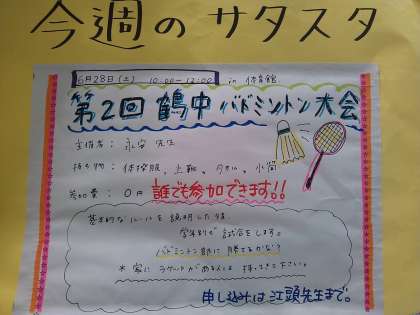 今週のサタスタ
6月28日(土) 10:00〜12:00 in 体育館
第2回 鶴中 バドミントン大会
主催者: 永安 先生
持ち物: 体操服、上靴、タオル、水筒
参加費: 0円 誰でも参加できます!!
基本的なルールを説明した後、
学年別で試合をします。
バドミントン部に勝てるかな?
*家にラケットがある人は持ってきて下さい。
申し込みは江頭先生まで。